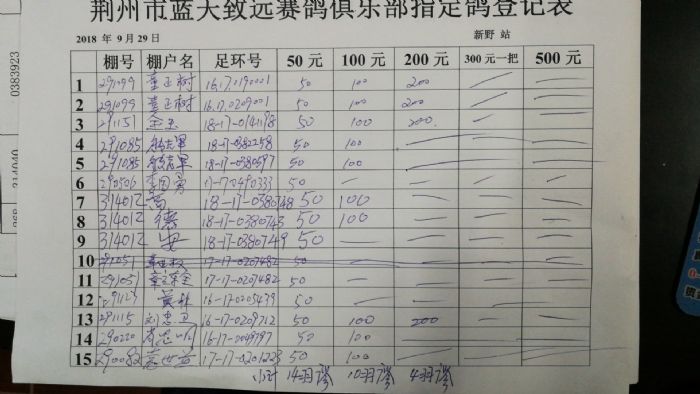 荆州市蓝天致远赛鸽俱乐部指定鸽登记表
2018 年 9 月 29 日 新野 站
棚号 棚户名 足环号 50 元 100 元 200 元 300 元一把 500 元
1 291099 董正树 16.17.0190001 50 100 200 — —
2 291099 董正树 16.17.0209001 50 100 200 — —
3 291151 全玉 18-17-0141178 50 100 200 — —
4 291085 18-17-0382258 50 100 — — —
5 291085 18-17-0380597 50 100 — — —
6 290506 17-17-0490333 50 — — — —
7 314012 高 18-17-0380748 50 100 — — —
8 314012 德 18-17-0380743 50 100 — — —
9 314012 安 18-17-0380749 50 — — — —
10 291051 17-17-0207482 50
11 291051 17-17-0207482 50 — — — —
12 291127 16-17-0205479 50 — — — —
13 291115 刘忠卫 16-17-0209712 50 100 200 — —
14 290220 16-17-0049797 50 100 — — —
15 290082 17-17-0201223 50 100 — — —
小计 14羽 10羽 4羽
0383923
314040